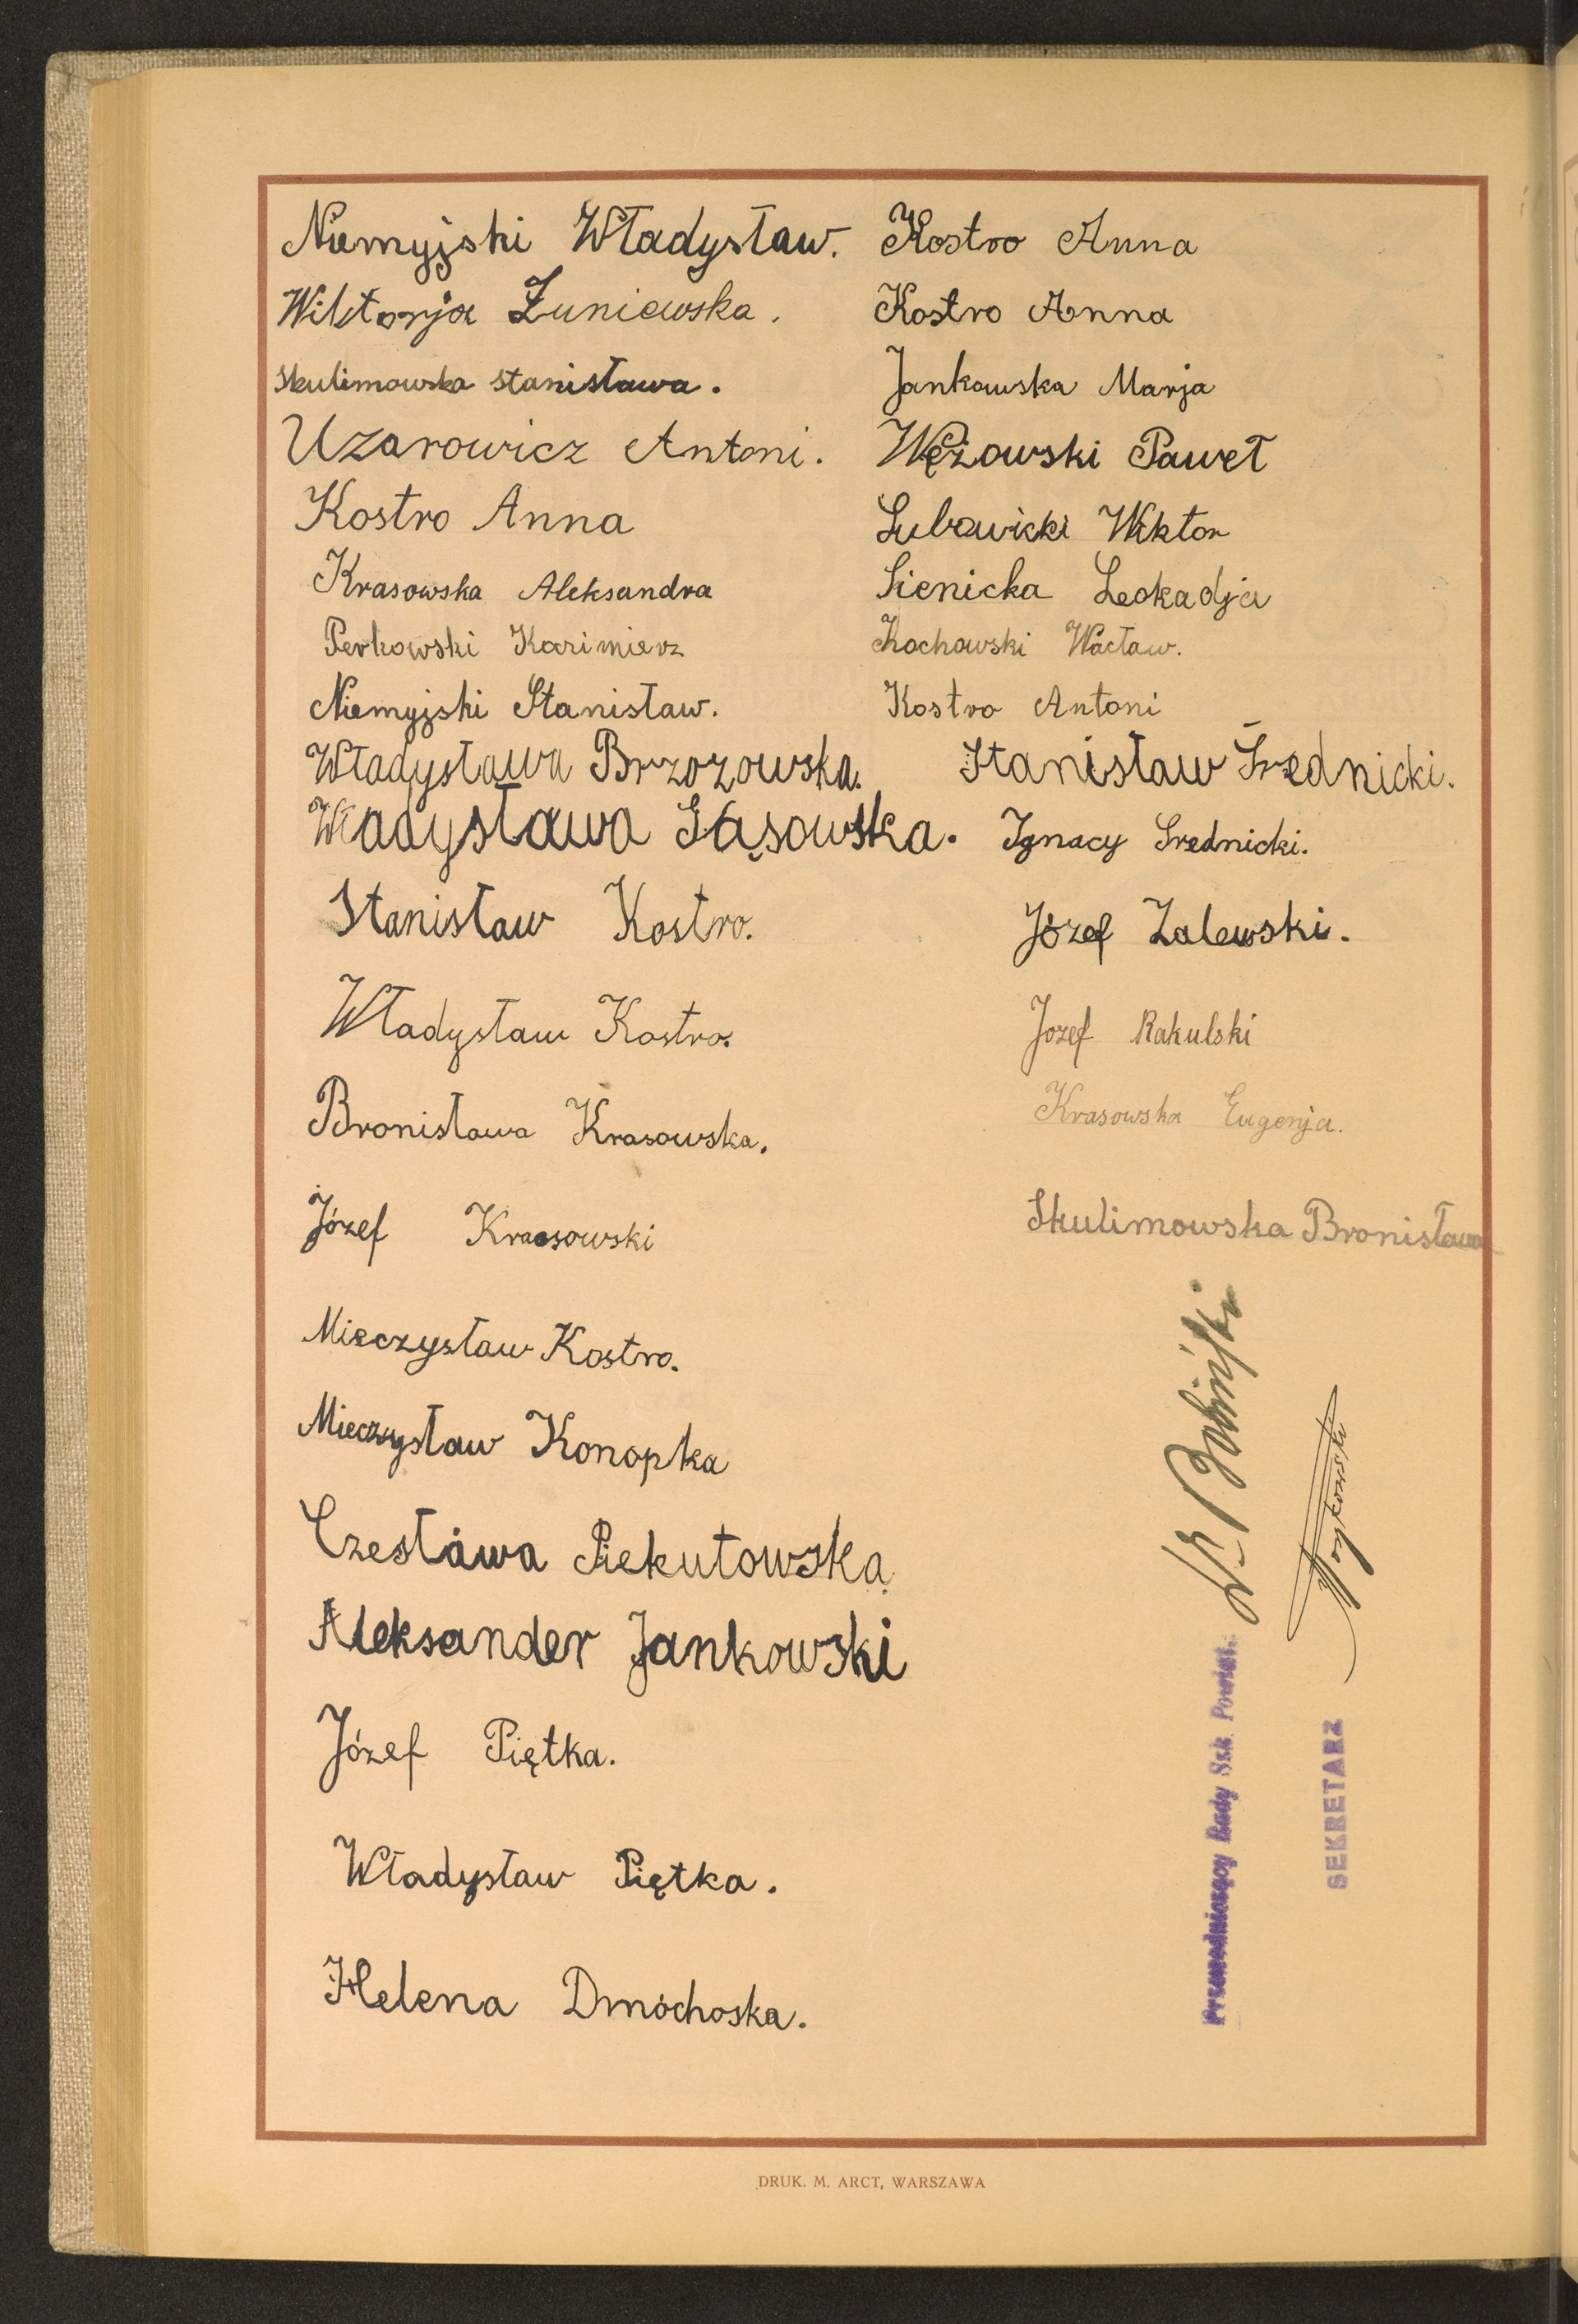 Niemyjski Władysław.
Wiktorja Żuniewska.
Skulimowska Stanisława.
Uzarowicz Antoni.
Kostro Anna
Krasowska Aleksandra
Perkowski Kazimierz
Niemyjski Stanisław.
Władysława Brzozowska.
Władysława Gąsowska.
Stanisław Kostro.
Władysław Kostro.
Bronisława Krasowska.
Józef Krassowski
Mieczysław Kostro.
Mieczysław Konopka
Czesława Piekutowska
Aleksander Jankowski
Józef Piętka.
Władysław Piętka.
Helena Dmóchoska.
Kostro Anna
Kostro Anna
Jankowska Marja
Wężowski Paweł
Lubowicki Wiktor
Sienicka Leokadja
Żochowski Wacław.
Kostro Antoni
Stanisław Średnicki.
Ignacy Srednicki.
Józef Zalewski.
Jozef Rakulski
Krasowska Eugenja.
Skulimowska Bronisława
Przewodniczący Rady Szk. Powiat.
SEKRETARZ
DRUK. M. ARCT, WARSZAWA